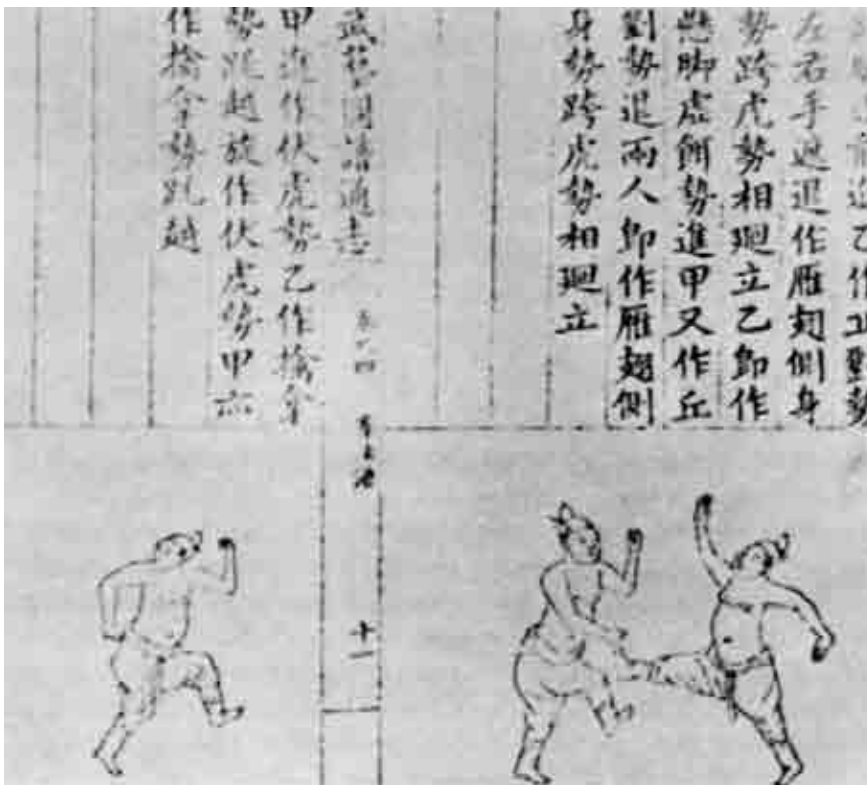 前進乙作丘劉勢
左右手遮退作雁翅側身
勢跨虎勢相廻立乙卽作
懸脚虛餌勢進甲又作丘
劉勢退兩人卽作雁翅側
身勢跨虎勢相廻立
武藝圖譜通志 卷之四 拳法 十一
甲進作伏虎勢乙作擒拿
勢跳越旋作伏虎勢甲亦
作擒拿勢跳越